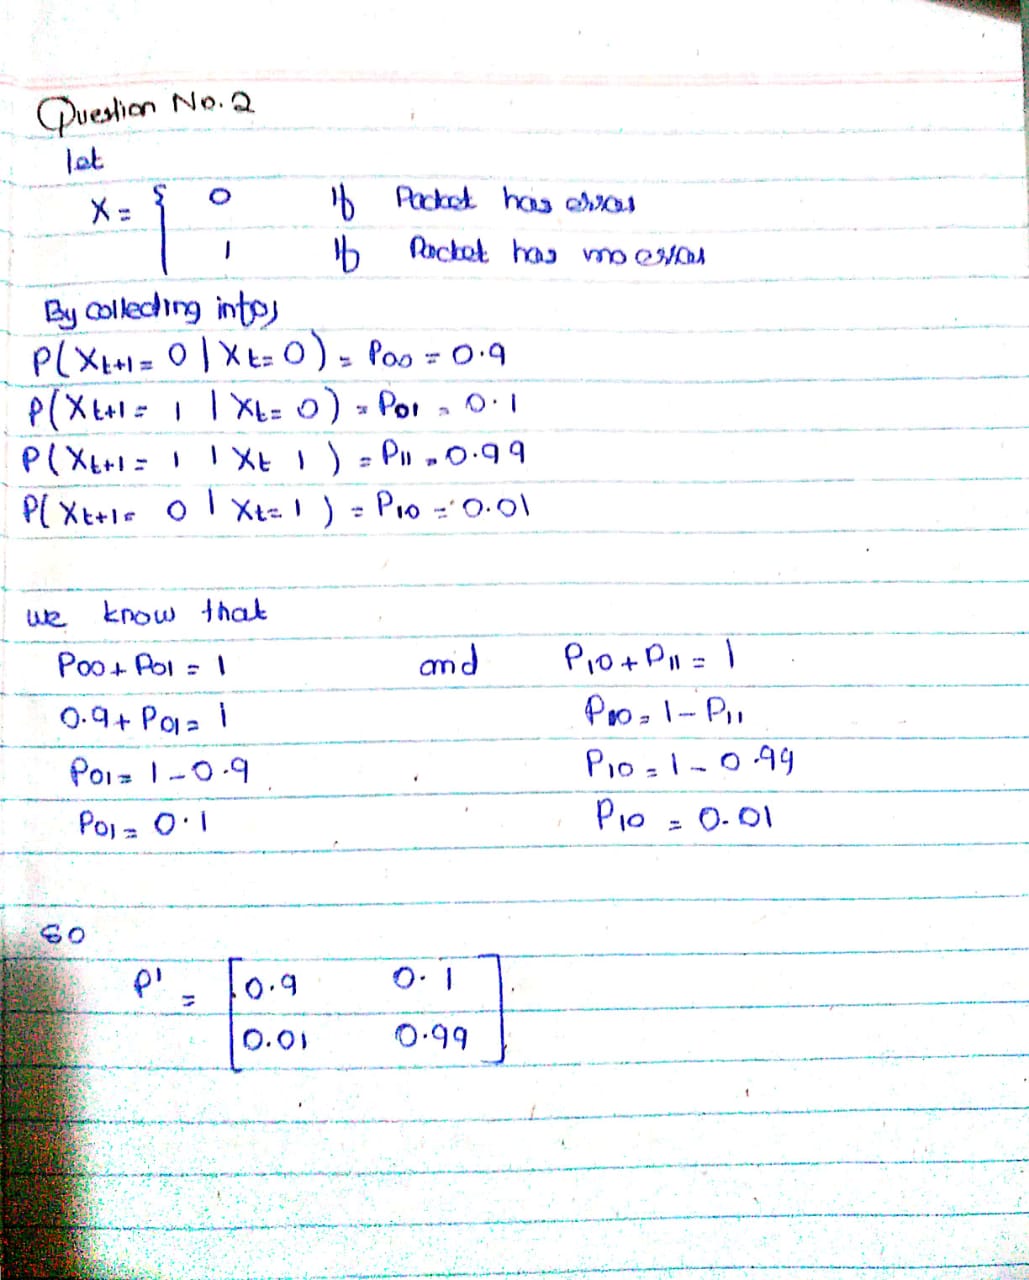 Question No. 2
let
X = { 0 If Packet has error
1 If Packet has no error
By collecting info,
P(Xt+1 = 0 | Xt = 0) = P00 = 0.9
P(Xt+1 = 1 | Xt = 0) = P01 = 0.1
P(Xt+1 = 1 | Xt 1) = P11 = 0.99
P(Xt+1 = 0 | Xt = 1) = P10 = 0.01
we know that
P00 + P01 = 1 and P10 + P11 = 1
0.9 + P01 = 1 P10 = 1 - P11
P01 = 1 - 0.9 P10 = 1 - 0.99
P01 = 0.1 P10 = 0.01
so
P' = [0.9 0.1]
[0.01 0.99]